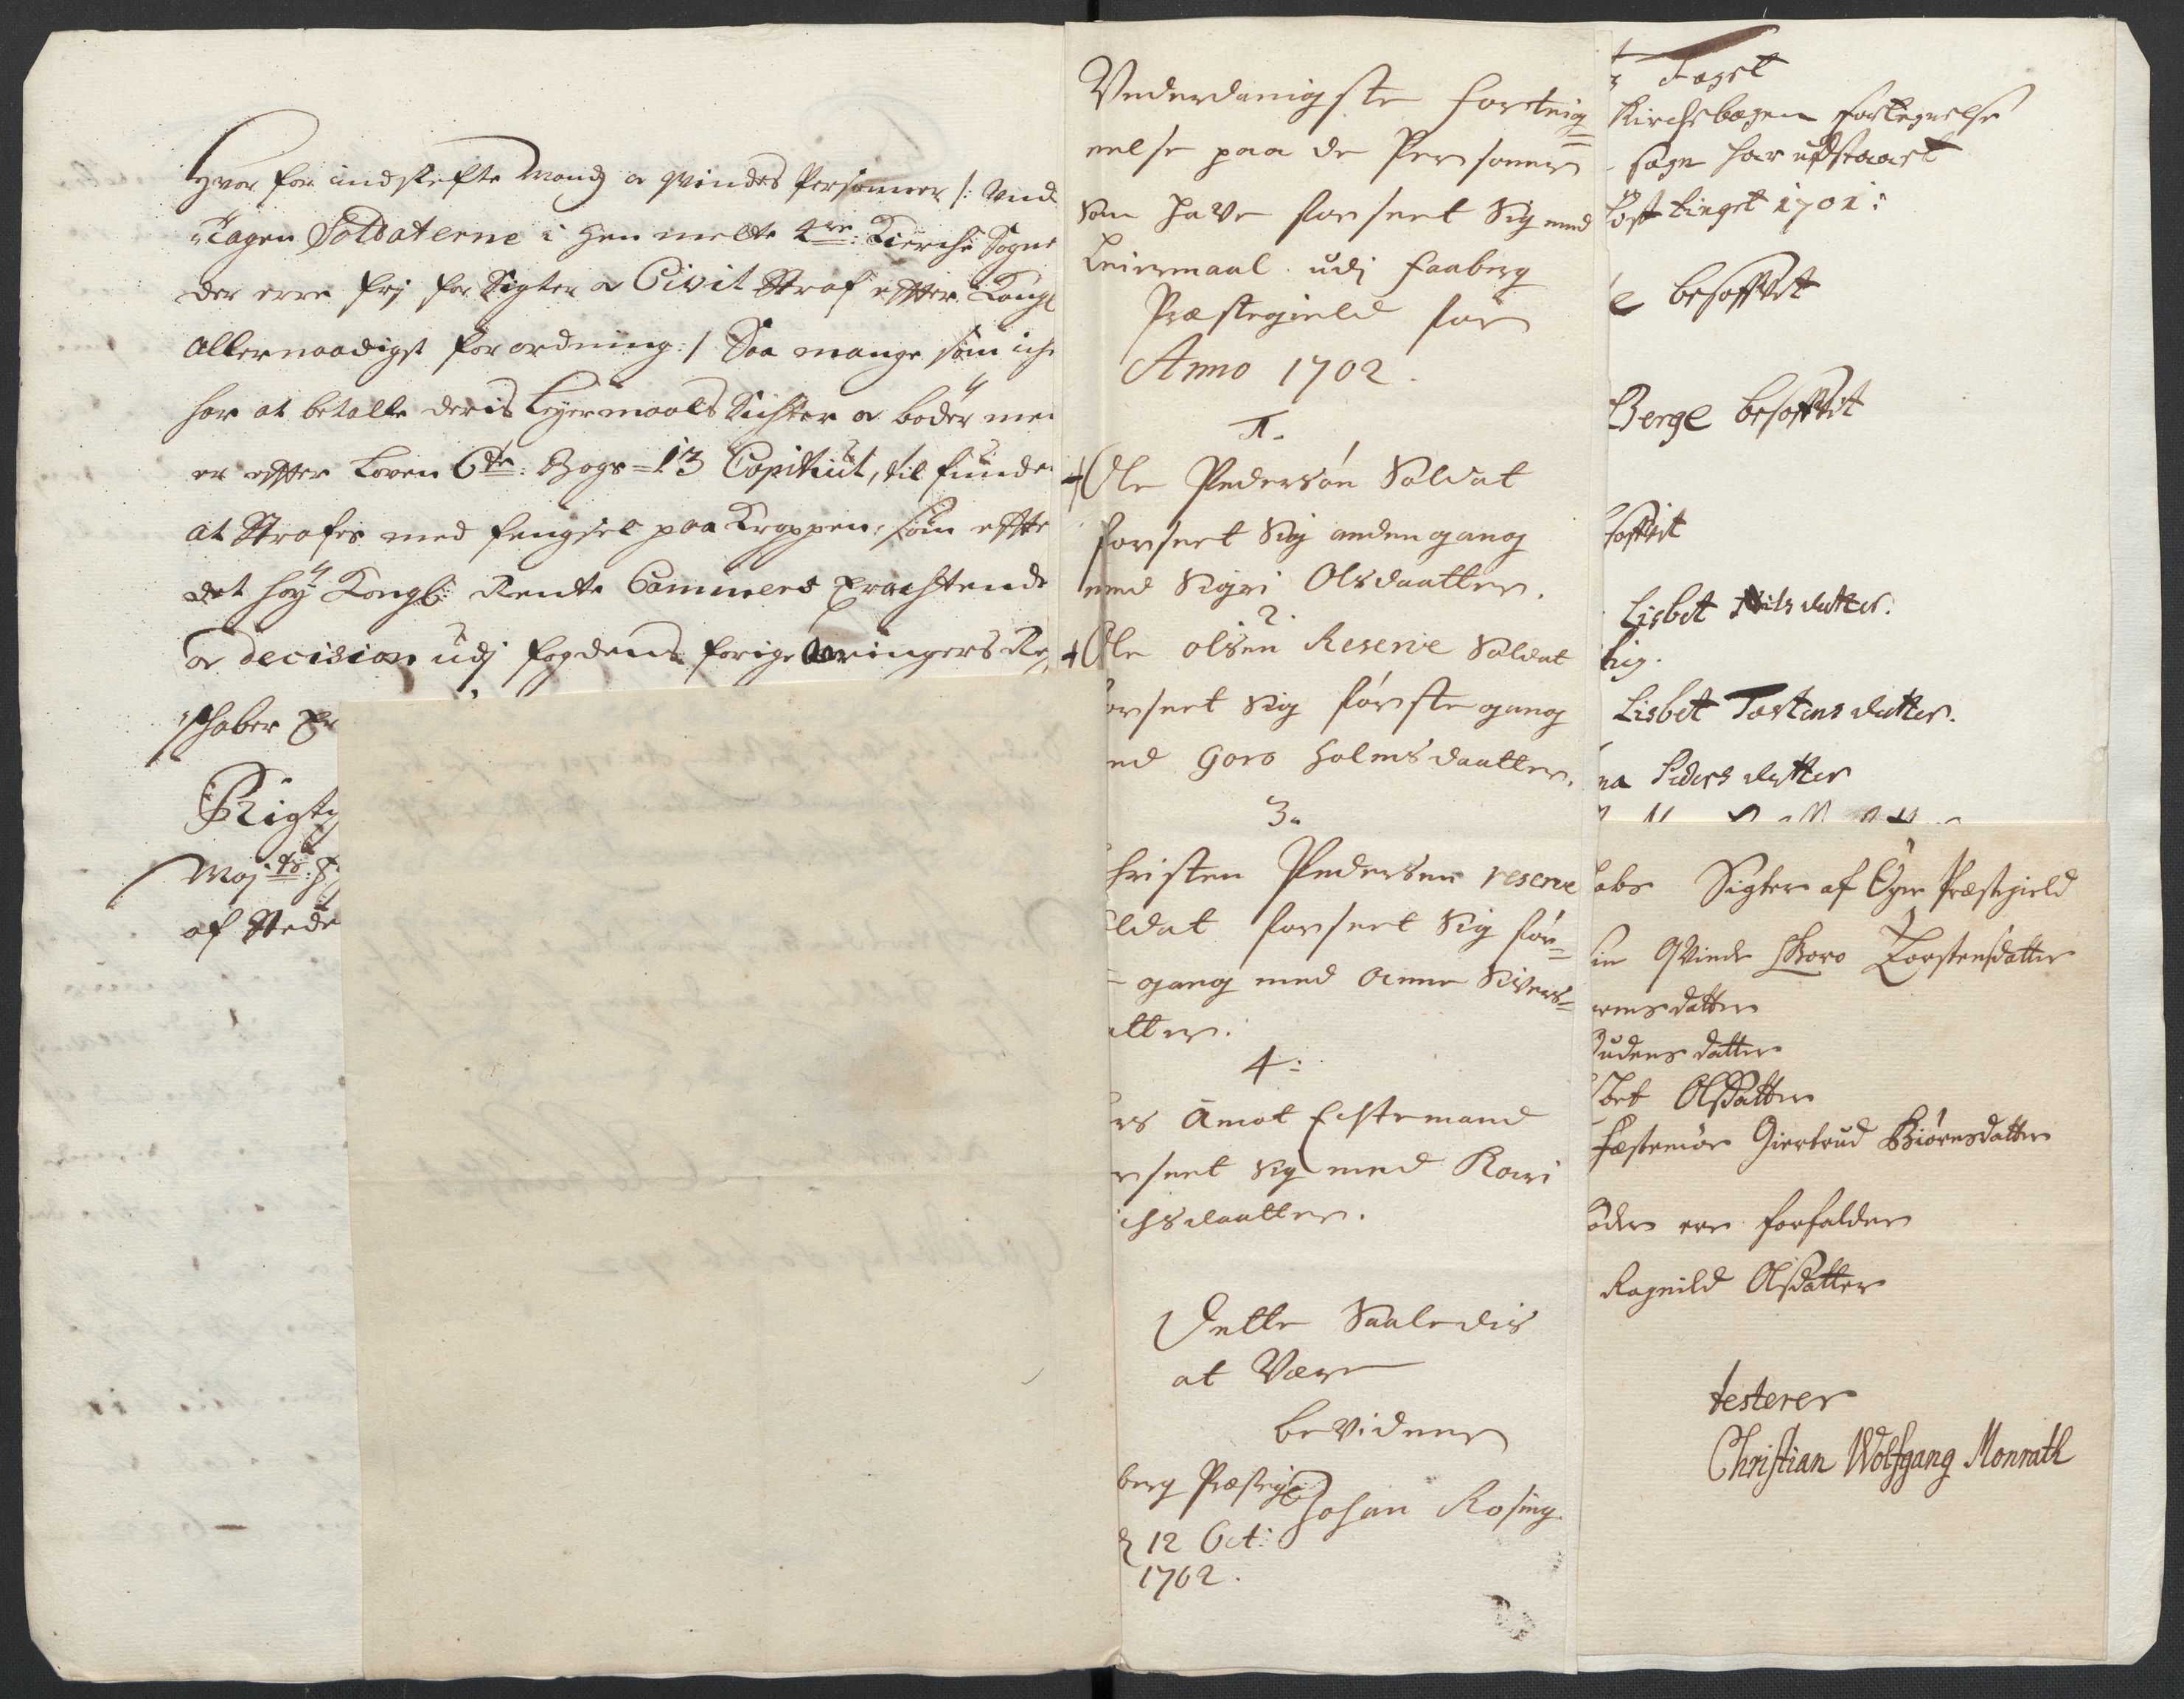 Hvor for indstefte Mand og Qvindes Personner /: Und
tagen Soldaterne i hen melte 4re: Kierche Sogne
der erre frj for Sigter og Civil Straf effter Kongl
Allernaadigst forordning :/ Saa mange som iche
har at betalle deris Leyermaals Sichter og bøder me
er effter Loven 6te: Bogs = 13 Capitiul, til funde
at Strafes med fengsel paa Kroppen, som effte
det høy Kongl: Rente Cammers Erachtende
og decision udj fogdens forige Aaringers Re
schaber Er
Rigti
Maj ts: H
af Stede
Underdanigste forteig=
nelse paa de Personer
som have forseet Sig med
Leiermaal udj Faaberg
Præstegield for
Anno 1702.
1.
+ Ole Pedersøn Soldat
forseet Sig anden gang
med Sigri Olsdaatter.
2.
+ Ole olsøn Reserve Soldat
orseet Sig første gang
ed Goro Holmsdaatter.
3.
hristen Pedersøn reserve
ldat forseet Sig før=
gang med Anne Sivers=
atter.
4:
rs Amot Echtemand
rseet Sig med Kari
ichsdaatter.
Dette Saaledis
at Være
beVidner
berg Præsteg:
Johan Rosing.
d 12 Oct:
1702.
Faget
Kirchebogen fortegnelse
sogn har udstaaet
Høste tinget 1701:
e besoffvet
Berge besoffvet
soffvet
Lisbet Nilsdatter.
hig.
Lisbet Tostensdatter.
na Pedersdatter
labs Sigter af Øyer Præstegield
sin Qvinde Goro Torstensdatter
rensdatter
Judens datter
sbet Olsdatter
fæstemøe Giertrud Biørnsdatter
bøder ere forfalden
Ragnild Olsdatter
testerer
Christian Wolfgang Monrath